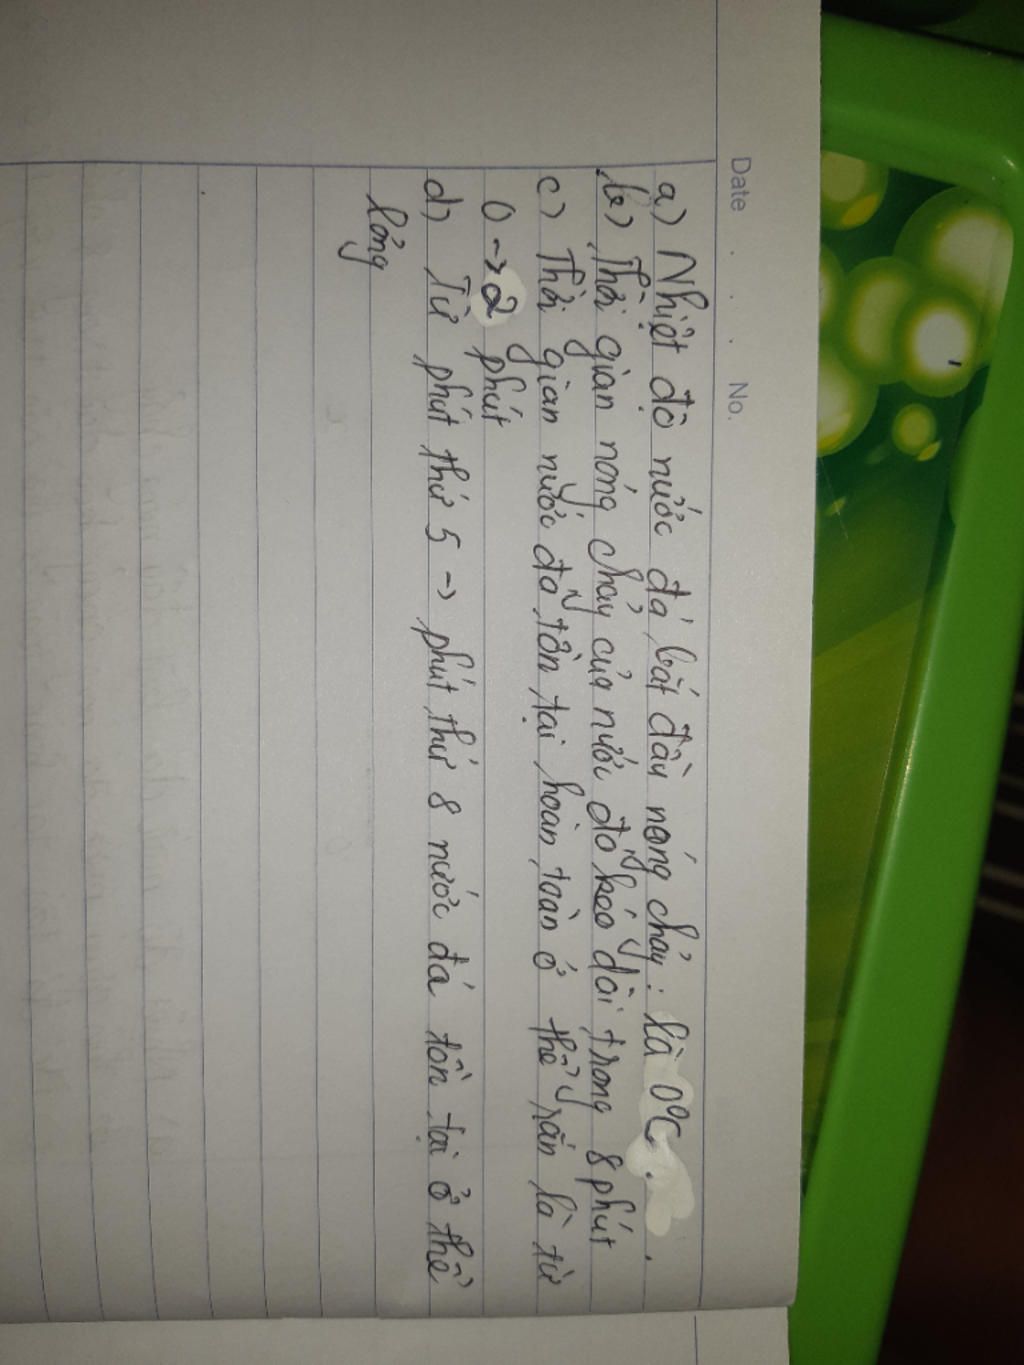 Date . . . No.
a) Nhiệt độ nước đá bắt đầu nóng chảy : là 0°C .
b) Thời gian nóng chảy của nước đá kéo dài trong 8 phút
c) Thời gian nước đá tồn tại hoàn toàn ở thể rắn là từ
0 → 2 phút
d) Từ phút thứ 5 → phút thứ 8 nước đá tồn tại ở thể
lỏng